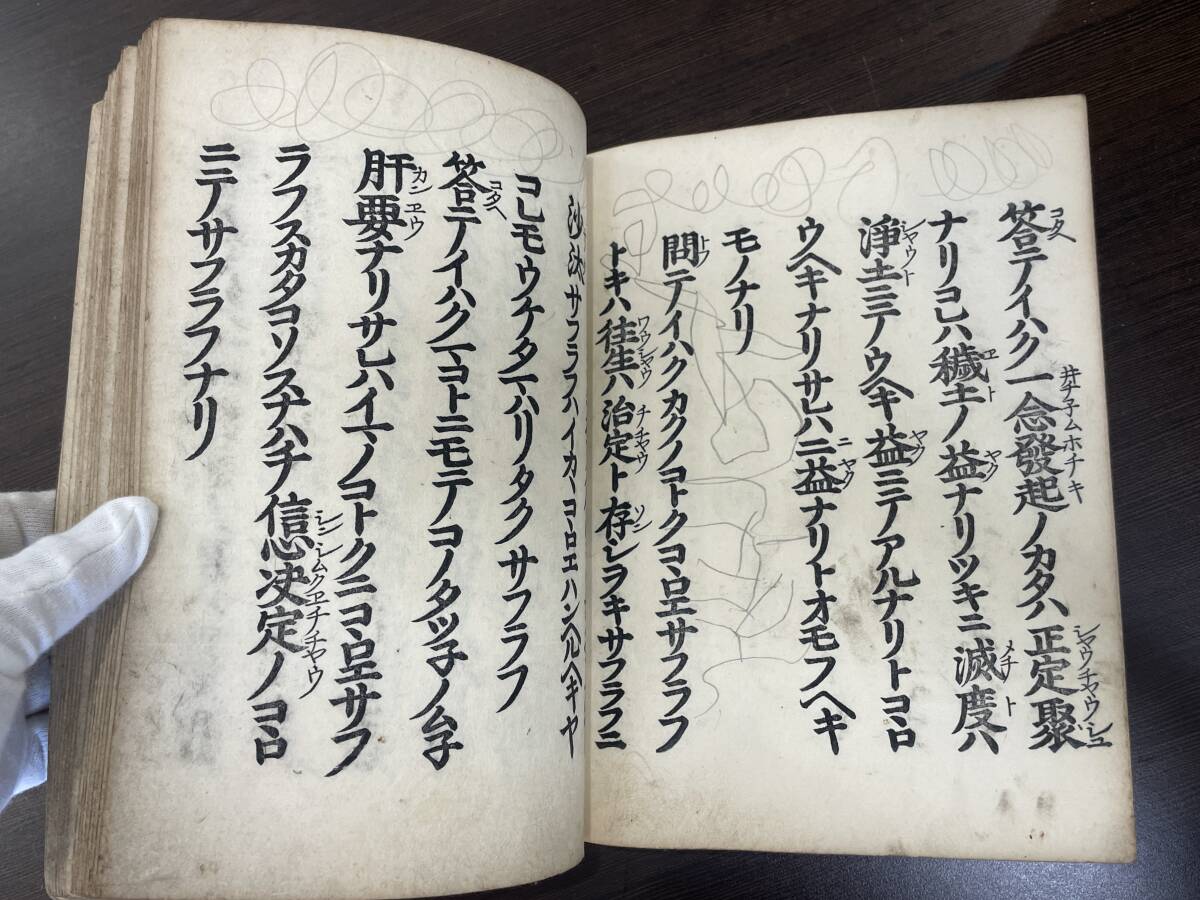 答テイハク一念發起ノカタハ正定聚
ナリコレハ穢土ノ益ナリツキニ滅度ハ
淨土ニテウヘキ益ニテアルナリトコヽロ
ウヘキナリサレハ二益ナリトオモフヘキ
モノナリ
問テイハクカクノコトクコヽロエサフラフ
トキハ徃生ハ治定ト存シヲキサフラフニ
沙汰サフラフハイカヽコヽロエハンヘルヘキヤ
コレモウケタマハリタクサフラフ
答テイハクマコトニモテコノタツ子ノム子
肝要ナリサレハイマノコトクニコヽロエサフ
ラフスカタコソスナハチ信心决定ノコヽロ
ニテサフラフナリ